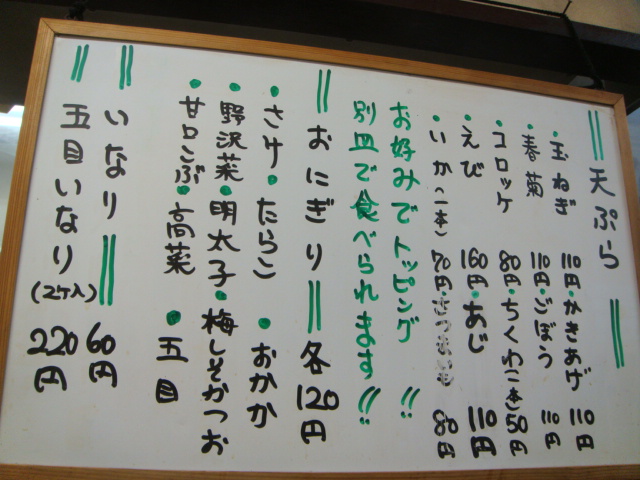 天ぷら
・玉ねぎ 110円・かきあげ 110円
・春菊 110円・ごぼう 110円
・コロッケ 80円・ちくわ(一本) 50円
・えび 160円・あじ 110円
・いか(一本) 70円・さつまいも 80円
お好みでトッピング!!
別皿で食べられます!!
おにぎり 各120円
・さけ・たらこ・おかか
・野沢菜・明太子・梅しそかつお
・甘口こぶ・高菜・五目
いなり 60円
五目いなり(2ヶ入) 220円